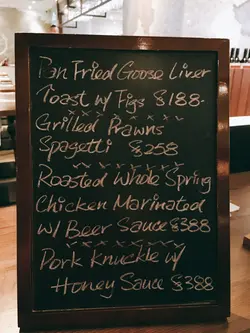 Pan Fried Goose Liver
Toast w/ Figs $188-
Grilled Prawns
Spagetti $258
Roasted Whole Spring
Chicken Marinated
w/ Beer Sauce $388
Pork Knuckle w/
Honey Sauce $388